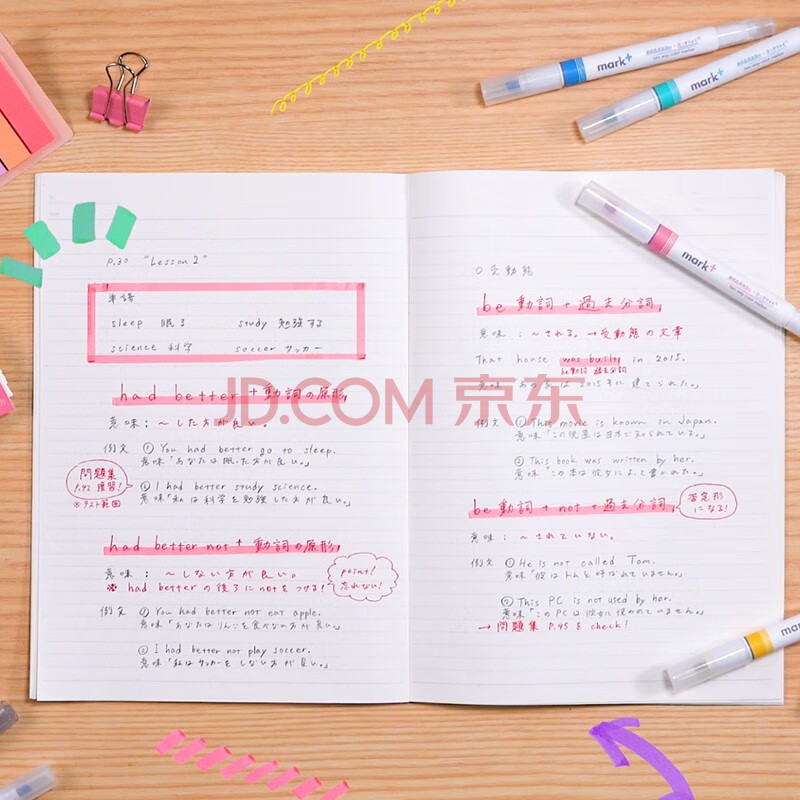 P.30 "Lesson 2"
単語
sleep 眠る study 勉強する
science 科学 soccer サッカー
had better + 動詞の原形
意味：〜した方が良い。
例文 ① You had better go to sleep.
意味「あなたは眠った方が良い。」
問題集
P.42 復習!
※テスト範囲
② I had better study science.
意味「私は科学を勉強した方が良い。」
had better not + 動詞の原形
意味：〜しない方が良い。
※ had better の後ろに not をつける!
point!
忘れない!
例文 ① You had better not eat apple.
意味「あなたはりんごを食べない方が良い。」
② I had better not play soccer.
意味「私はサッカーをしない方が良い。」
○受動態
be 動詞 + 過去分詞
意味：〜される。→ 受動態の文章
That house was built in 2015.
be動詞 過去分詞
意味「あの家は2015年に建てられた。」
例文 ① That movie is known in Japan.
意味「この映画は日本で知られている。」
② This book was written by her.
意味「この本は彼女によって書かれた。」
be 動詞 + not + 過去分詞
否定形
になる!
意味：〜されていない。
例文 ① He is not called Tom.
意味「彼はトムと呼ばれていません。」
② This PC is not used by her.
意味「このPCは彼女に使われていません。」
→ 問題集 P.45 を check!
mark+
mark+
mark+
mark+
JD.COM 京东